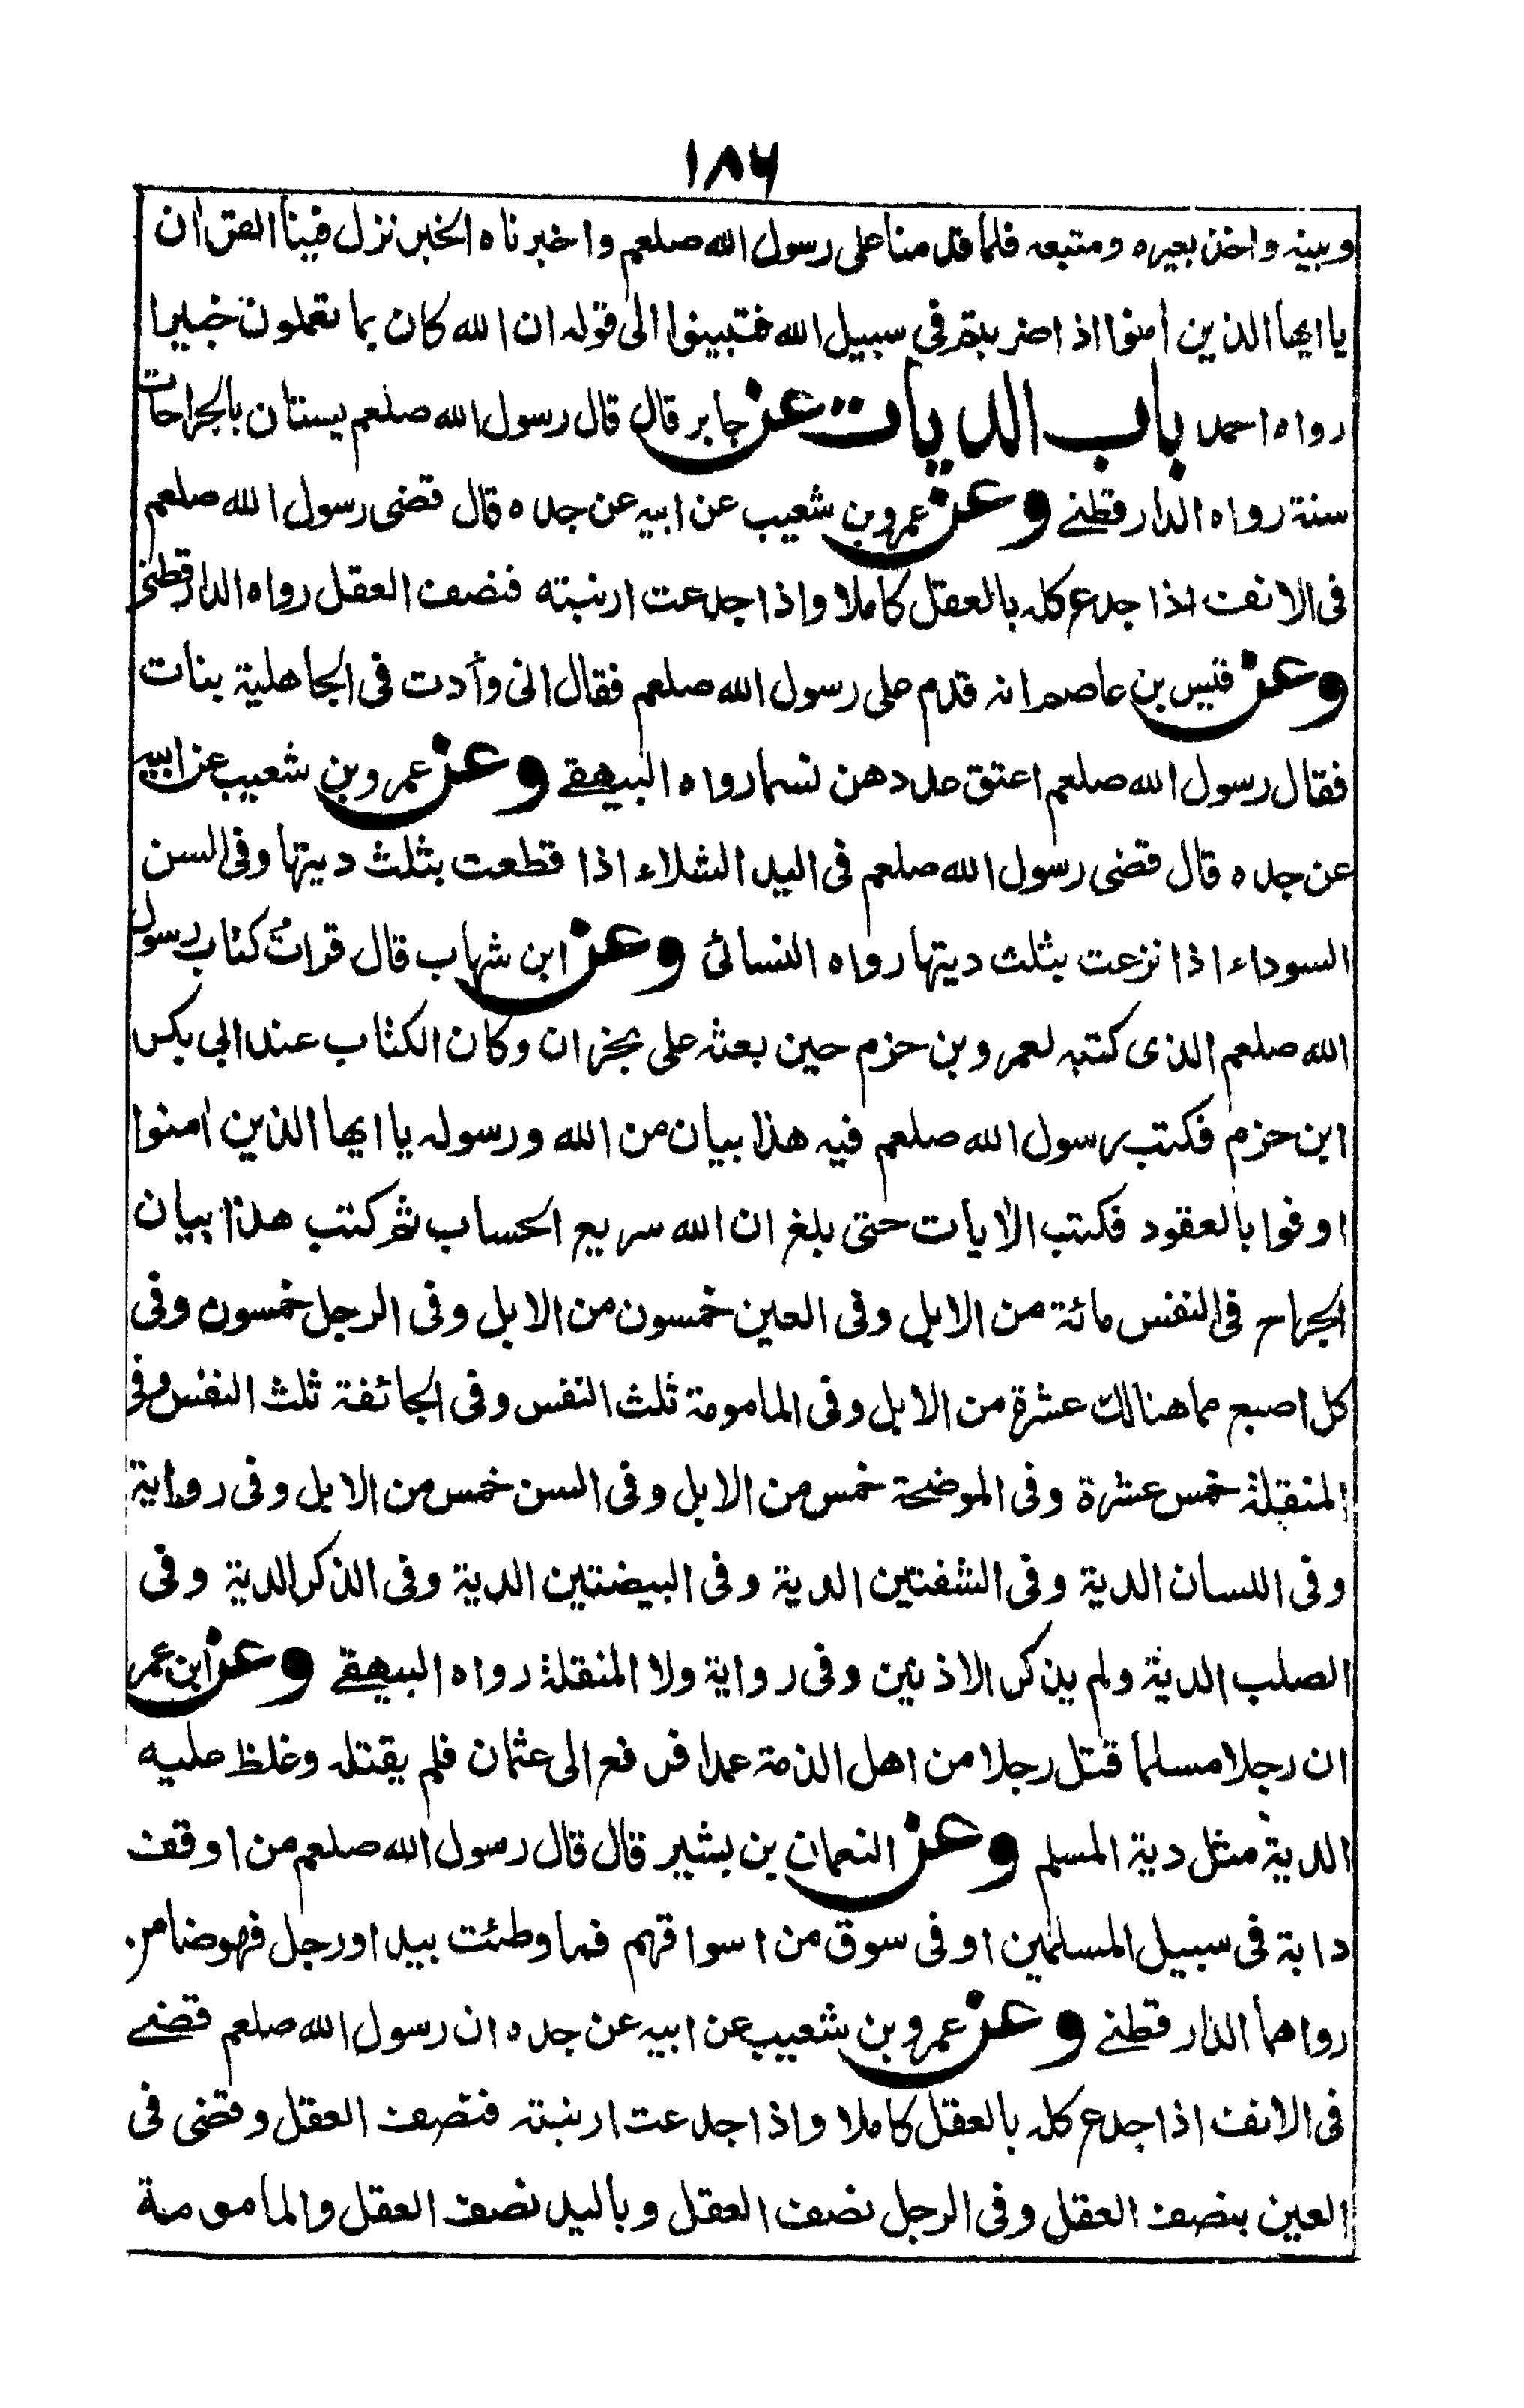 ١٨٦
وبينه واخذ بعيره ومتبعه فلما قدمنا على رسول الله صلعم واخبرناه الخبر نزل فينا القرآن
يا ايها الذين آمنوا اذا ضربتم في سبيل الله فتبينوا الى قوله ان الله كان بما تعملون خبيرا
رواه احمد باب الديات عن جابر قال قال رسول الله صلعم يستان بالجراحات
سنة رواه الدار قطني وعن عمرو بن شعيب عن ابيه عن جده قال قضى رسول الله صلعم
في الانف اذا جدع كله بالعقل كاملا واذا جدعت ارنبته فنصف العقل رواه الدار قطني
وعن قيس بن عاصم انه قدم على رسول الله صلعم فقال انى وأدت في الجاهلية بنات
فقال رسول الله صلعم اعتق عددهن نسما رواه البيهقي وعن عمرو بن شعيب عن ابيه
عن جده قال قضى رسول الله صلعم في اليد الشلاء اذا قطعت بثلث ديتها وفي السن
السوداء اذا نزعت بثلث ديتها رواه النسائي وعن ابن شهاب قال قرات كتاب رسول
الله صلعم الذي كتبه لعمرو بن حزم حين بعثه على نجران وكان الكتاب عند ابي بكر
ابن حزم فكتب رسول الله صلعم فيه هذا بيان من الله ورسوله يا ايها الذين آمنوا
اوفوا بالعقود فكتب الآيات حتى بلغ ان الله سريع الحساب ثم كتب هذا بيان
الجراح في النفس مائة من الابل وفي العين خمسون من الابل وفي الرجل خمسون وفي
كل اصبع مما هنالك عشرة من الابل وفي المامومة ثلث النفس وفي الجائفة ثلث النفس وفي
المنقلة خمس عشرة وفي الموضحة خمس من الابل وفي السن خمس من الابل وفي رواية
وفي اللسان الدية وفي الشفتين الدية وفي البيضتين الدية وفي الذكر الدية وفي
الصلب الدية ولم يذكر الاذنين وفي رواية ولا المنقلة رواه البيهقي وعن ابن عمر
ان رجلا مسلما قتل رجلا من اهل الذمة عمدا فرفع الى عثمان فلم يقتله وغلظ عليه
الدية مثل دية المسلم وعن النعمان بن بشير قال قال رسول الله صلعم من اوقف
دابة في سبيل المسلمين او في سوق من اسواقهم فما وطئت بيد او رجل فهو ضامن
رواهما الدار قطني وعن عمرو بن شعيب عن ابيه عن جده ان رسول الله صلعم قضى
في الانف اذا جدع كله بالعقل كاملا واذا جدعت ارنبته فنصف العقل وقضى في
العين بنصف العقل وفي الرجل نصف العقل وباليد نصف العقل والمامومة